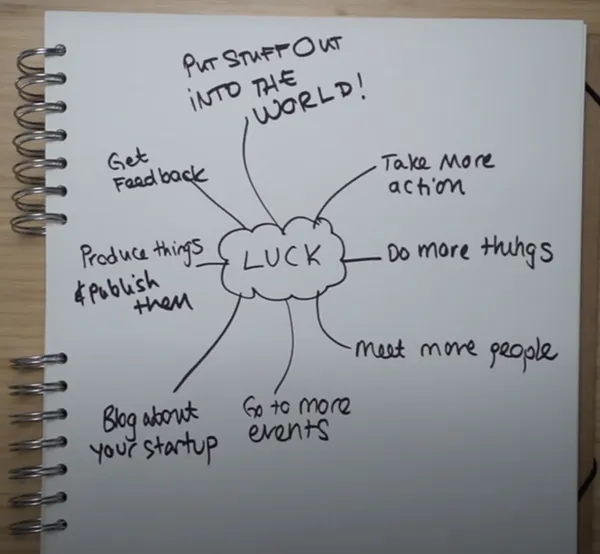 PUT STUFF OUT
INTO THE
WORLD!
Get
Feedback
Take More
action
Produce things
& publish
them
LUCK
Do more things
Meet more people
Blog about
your startup
Go to more
events